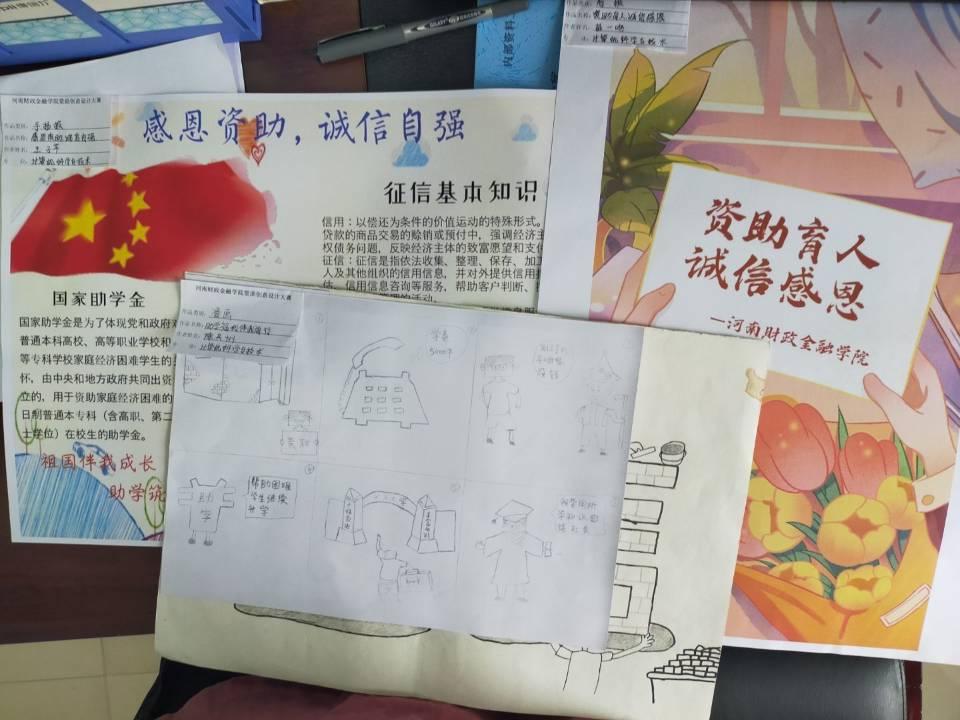 内部资料
河南财政金融学院资助创意设计大赛
作品类别:手抄报
作品名称:感恩资助诚信自强
计算机科学与技术
感恩资助,诚信自强
征信基本知识
信用:以偿还为条件的价值运动的特殊形式。
贷款的商品交易的赊销或预付中,强调经济主
权债务问题,反映经济主体的致富愿望和支付
征信:征信是指依法收集、整理、保存、加工
人及其他组织的信用信息,并对外提供信用报
估、信用信息咨询等服务,帮助客户判断、
国家助学金
国家助学金是为了体现党和政府对
普通本科高校、高等职业学校和
等专科学校家庭经济困难学生的
怀,由中央和地方政府共同出资
立的,用于资助家庭经济困难的
日制普通本专科(含高职、第二
士学位)在校生的助学金。
祖国伴我成长
助学筑
作品名称:资助育人诚信感恩
计算机科学与技术
资助育人
诚信感恩
—河南财政金融学院
河南财政金融学院资助创意设计大赛
作品类别:
作品名称:助学筑梦伴我前行
计算机科学与技术
学费
5000
助
学
帮助困难
学生继续
升学